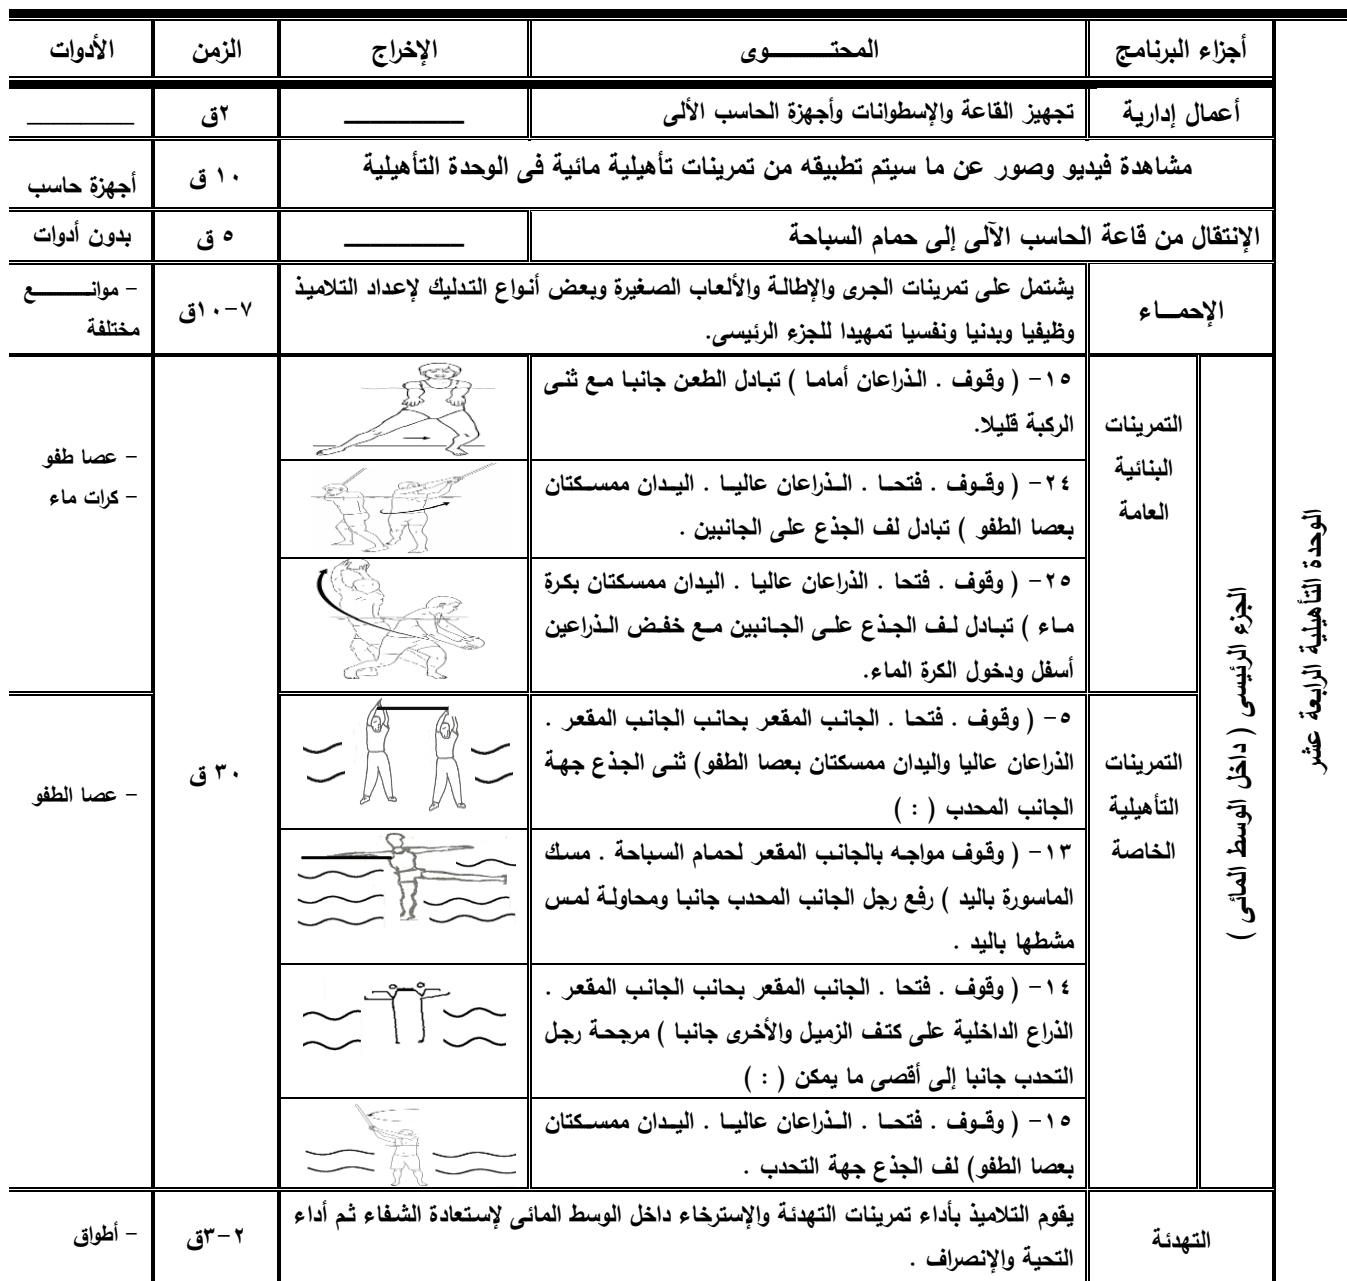 أجزاء البرنامج
المحتـــــــــوى
الإخراج
الزمن
الأدوات
أعمال إدارية
تجهيز القاعة والإسطوانات وأجهزة الحاسب الألى
٢ق
مشاهدة فيديو وصور عن ما سيتم تطبيقه من تمرينات تأهيلية مائية فى الوحدة التأهيلية
١٠ ق
أجهزة حاسب
الإنتقال من قاعة الحاسب الآلى إلى حمام السباحة
٥ ق
بدون أدوات
الإحمـــاء
يشتمل على تمرينات الجرى والإطالة والألعاب الصغيرة وبعض أنواع التدليك لإعداد التلاميذ
وظيفيا وبدنيا ونفسيا تمهيدا للجزء الرئيسى.
٧-١٠ق
- موانـــــــــع
مختلفة
الوحدة التأهيلية الرابعة عشر
الجزء الرئيسى ( داخل الوسط المائى )
التمرينات
البنائية
العامة
١٥- ( وقوف . الذراعان أماما ) تبادل الطعن جانبا مع ثنى
الركبة قليلا.
٢٤- ( وقـوف . فتحـا . الـذراعان عاليـا . اليـدان ممسـكتان
بعصا الطفو ) تبادل لف الجذع على الجانبين .
٢٥- ( وقوف . فتحا . الذراعان عاليا . اليدان ممسكتان بكرة
مـاء ) تبـادل لـف الجـذع علـى الجـانبين مـع خفـض الـذراعين
أسفل ودخول الكرة الماء.
- عصا طفو
- كرات ماء
٣٠ ق
التمرينات
التأهيلية
الخاصة
٥- ( وقوف . فتحا . الجانب المقعر بحانب الجانب المقعر .
الذراعان عاليا واليدان ممسكتان بعصا الطفو) ثنى الجذع جهة
الجانب المحدب ( : )
١٣- ( وقوف مواجه بالجانب المقعر لحمام السباحة . مسك
الماسورة باليد ) رفع رجل الجانب المحدب جانبا ومحاولة لمس
مشطها باليد .
١٤- ( وقوف . فتحا . الجانب المقعر بحانب الجانب المقعر .
الذراع الداخلية على كتف الزميل والأخرى جانبا ) مرجحة رجل
التحدب جانبا إلى أقصى ما يمكن ( : )
١٥- ( وقـوف . فتحـا . الـذراعان عاليـا . اليـدان ممسـكتان
بعصا الطفو) لف الجذع جهة التحدب .
- عصا الطفو
التهدئة
يقوم التلاميذ بأداء تمرينات التهدئة والإسترخاء داخل الوسط المائى لإستعادة الشفاء ثم أداء
التحية والإنصراف .
٢-٣ق
- أطواق